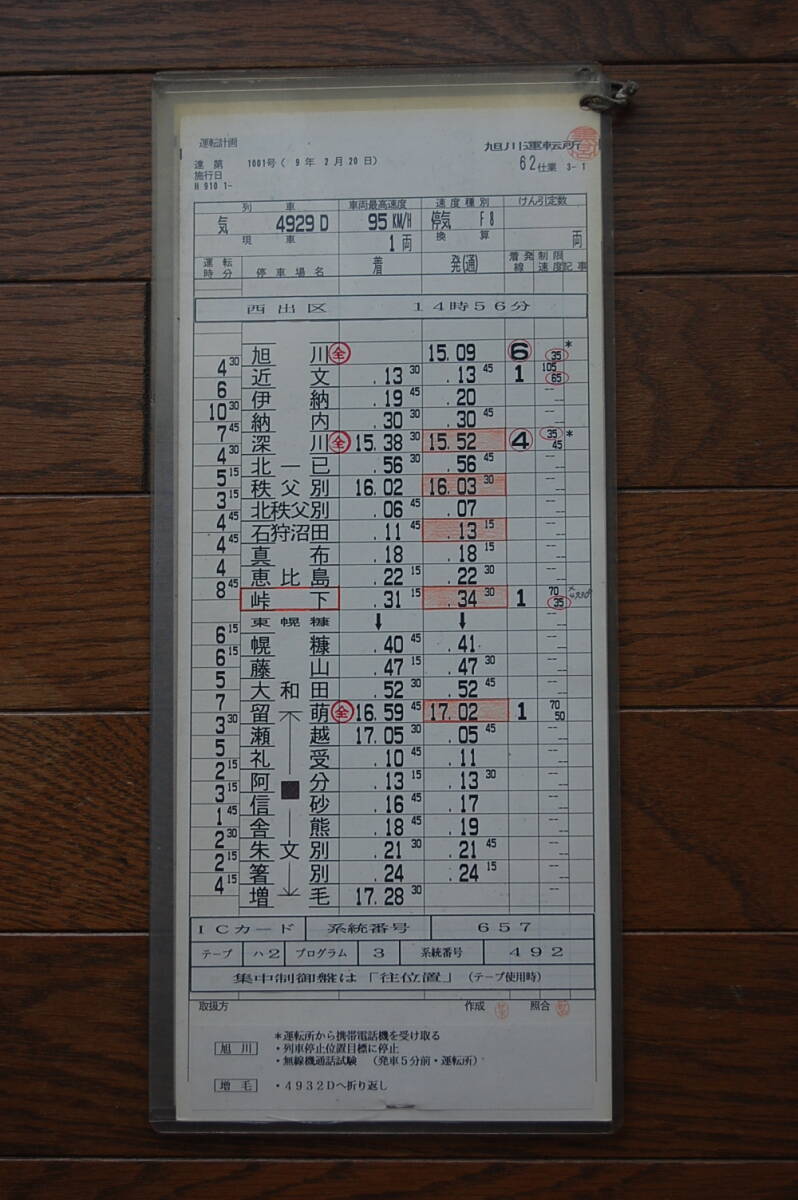 運転計画
達第 1001号( 9年 2月20日)
旭川運転所
施行日
62仕業 3-1
H 910 1-
列車 車両最高速度 速度種別 けん引定数
気 4929D 95KM/H 停気 F8
現車 1両 換算 両
運転時分 停車場名 着 発(通) 着発線 制限速度 記事
西出区 14時56分
旭川 全 15.09 6 35 *
4 30
近文 .13 30 .13 45 1 105 65
6
伊納 .19 45 .20
10 30
納内 .30 30 .30 45
7 45
深川 全 15.38 30 15.52 4 35 45 *
4 30
北一已 .56 30 .56 45
5 15
秩父別 16.02 16.03 30
3 15
北秩父別 .06 45 .07
4 45
石狩沼田 .11 45 .13 15
4 45
真布 .18 .18 15
4
恵比島 .22 15 .22 30
8 45
峠下 .31 15 .34 30 1 70 35
東幌糠 ↓ ↓
6 15
幌糠 .40 45 .41
6 15
藤山 .47 15 .47 30
5
大和田 .52 30 .52 45
7
留萌 全 16.59 45 17.02 1 70 50
3 30
瀬越 17.05 30 .05 45
5
礼受 .10 45 .11
2 15
阿分 .13 15 .13 30
3 15
信砂 .16 45 .17
1 45
舎熊 .18 45 .19
2 30
朱文別 .21 30 .21 45
2 15
箸別 .24 .24 15
4 15
増毛 17.28 30
ICカード 系統番号 657
テープ ハ2 プログラム 3 系統番号 492
集中制御盤は「往位置」(テープ使用時)
取扱方 作成 照合
*運転所から携帯電話機を受け取る
旭川 ・列車停止位置目標に停止
・無線機通話試験 (発車5分前・運転所)
増毛 ・4932Dへ折り返し